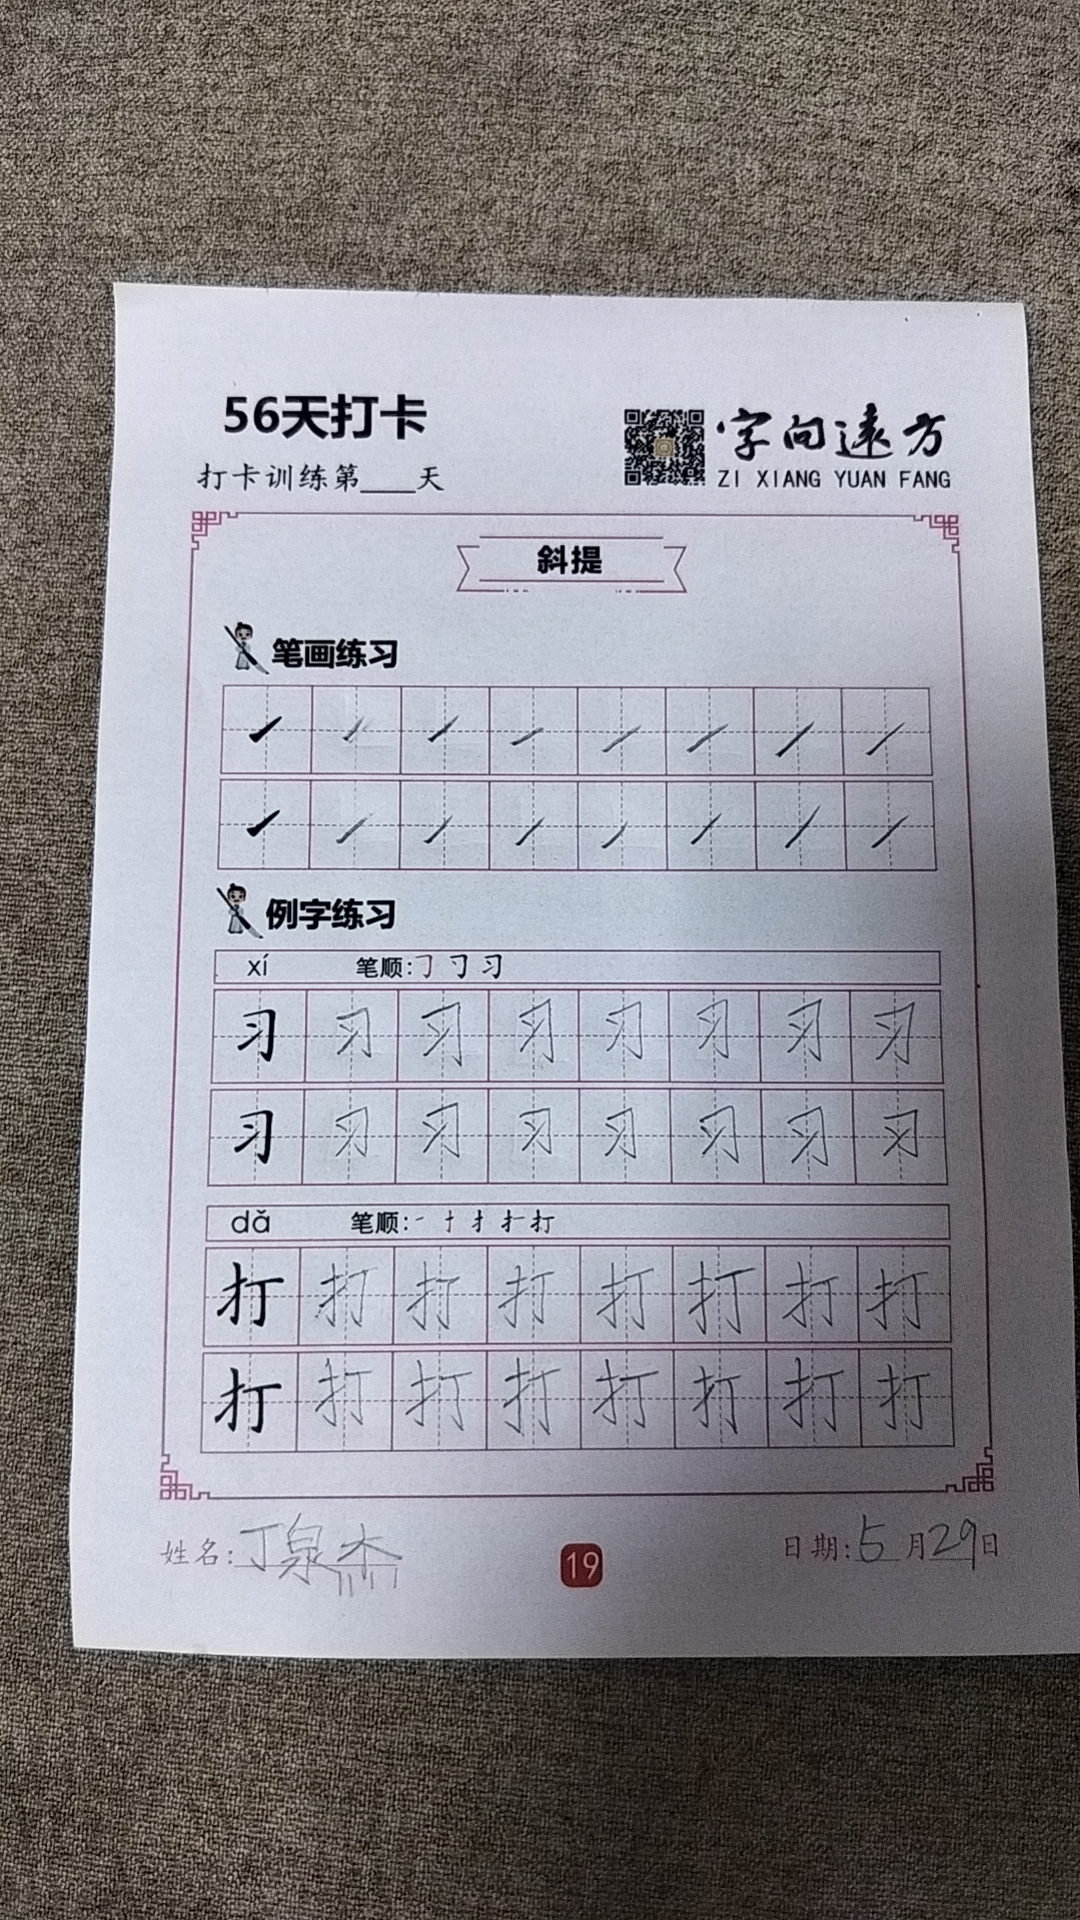 56天打卡
打卡训练第____天
字向远方
ZI XIANG YUAN FANG
斜提
笔画练习
例字练习
xí 笔顺:㇆ 习
习 习 习 习 习 习 习 习
习 习 习 习 习 习 习 习
dǎ 笔顺:一 十 扌 打
打 打 打 打 打 打 打 打
打 打 打 打 打 打 打 打
姓名:丁泉杰
19
日期:5月29日